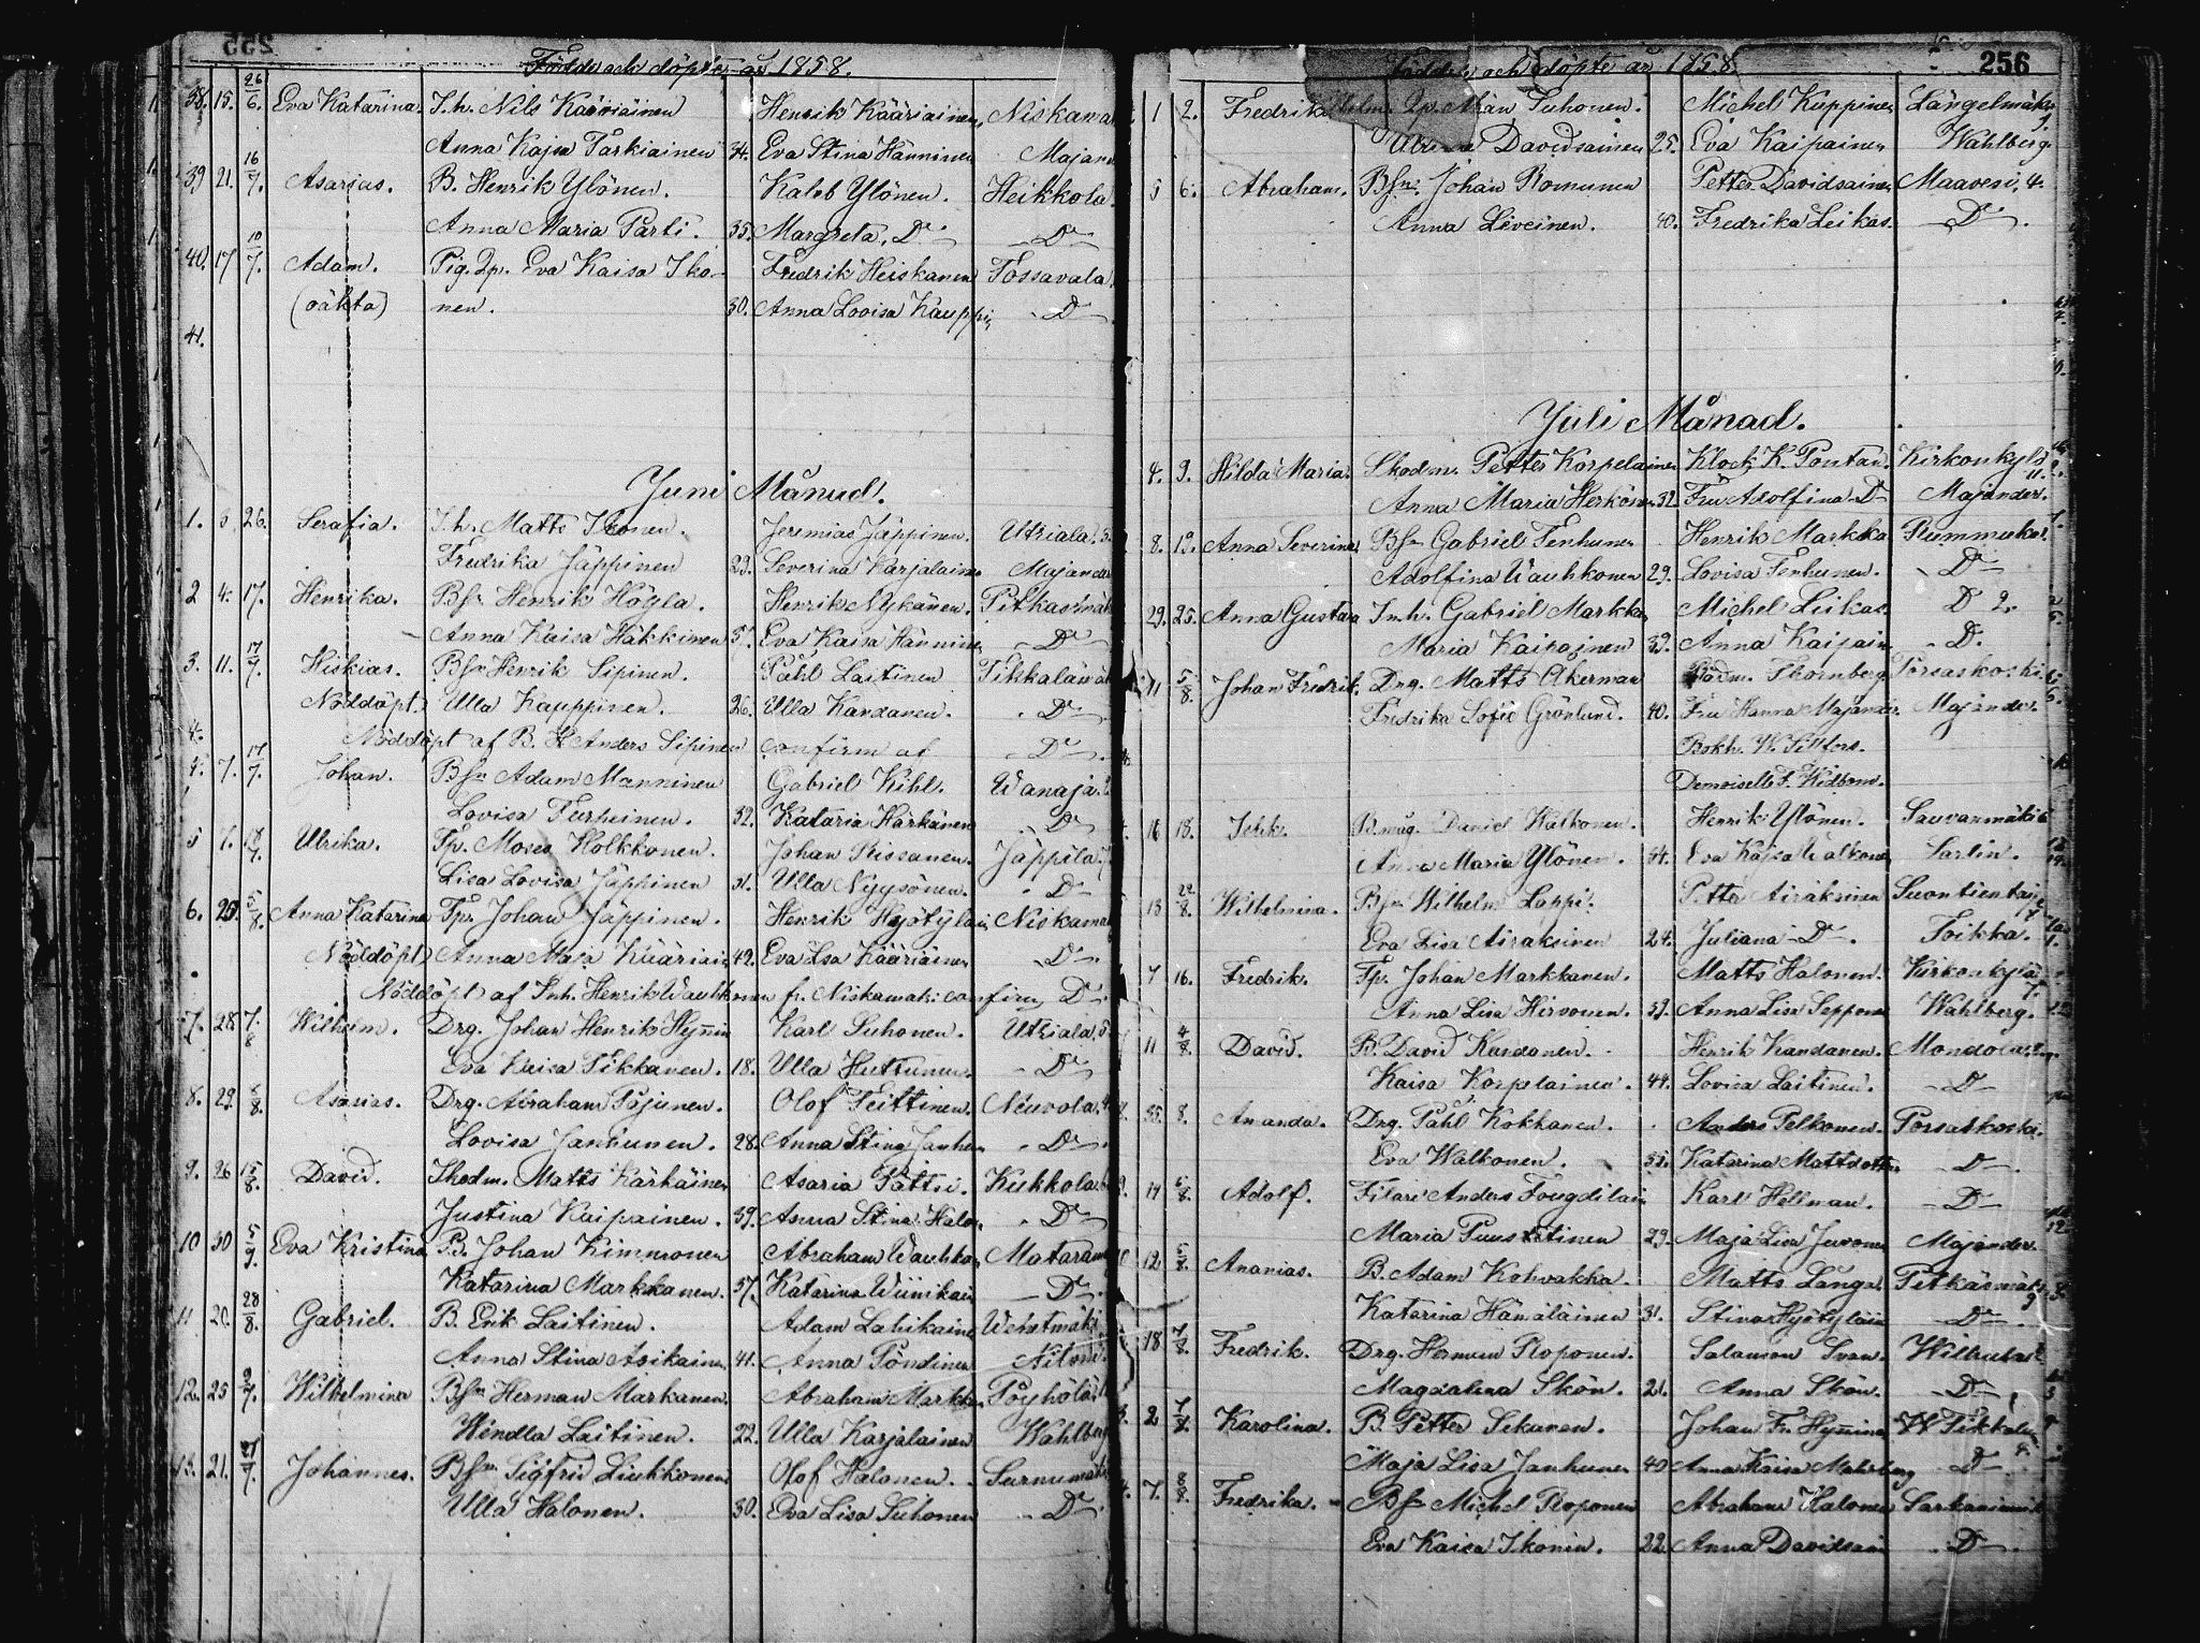 255
Födde och döpte år 1858.
38. 15. 26/6. Eva Katarina. I.h. Nils Kääriäinen Henrik Kääriäinen, Niskama
Anna Kajsa Tarkiainen 34. Eva Stina Hänninen Majan
39 21. 16/7. Asarias. B. Henrik Ylönen. Kaleb Ylönen. Heikkola.
Anna Maria Parti. 35. Margreta, Do Do
40. 17 10/7. Adam. Pig. Eva Kaisa Iko- Fredrik Heiskanen Tossavala.
(oäkta) nen. 30. Anna Lovisa Kauppi Do
41.
Juni Månad.
1. 26. Serafia. I.h. Matts Ikonen. Jeremias Jäppinen. Utriala. 5.
Fredrika Jäppinen 23. Severina Karjalainen Majander
2 4. 17. Henrika. Bsn Henrik Högla. Henrik Nykänen. Pitkäsmäk
Anna Kaisa Hakkinen Eva Kaisa Hänninen Do
3. 11. 17/7. Hiskias. Bsn Henrik Sipinen. Påhl Laitinen Tikkalanmäk
Nöddöpt. Ulla Kauppinen. 26. Ulla Kandanen. Do
4. Nöddöpt af B. H Anders Sipinen confirm af Do
4. 7. 17/7. Johan. Bsn Adam Manninen Gabriel Kihl. Wanaja.
Lovisa Turheinen. 32. Kataria Härkänen Do
5 7. 18/7. Ulrika. Tp. Moses Holkkonen. Johan Rissanen. Jäppilä.
Lisa Lovisa Jäppinen 31. Ulla Nyysönen. Do
6. 25. 5/8. Anna Katarina Tp. Johan Jäppinen. Henrik Hyötyläin Niskama
Nöddöpt) Anna Maja Kääriäin 42. Eva Lisa Kääriäinen Do
Nöddöpt af Inh. Henrik Wauhkonen fr. Niskamäki confirm Do
7. 28 7/8 Wilhelm. Drg. Johan Henrik Hynnin Karl Suhonen. Utriala, 5
Eva Kaisa Tikkanen. 18. Ulla Huttunen. Do
8. 29. 8/8. Asarias. Drg. Abraham Pajunen. Olof Teittinen. Neuvola.
Lovisa Janhunen. 28. Anna Stina Janhun Do
9. 26 15/8. David. Skodm. Matts Kärkäinen Asaria Pättsi. Kukkola.
Justina Kaipainen. 39. Anna Stina Halon Do
10 30 5/9. Eva Kristina B. Johan Kimmonen Abraham Wauhkon Mataram
Katarina Markkanen. 37. Katarina Wiinikain Do
11 20. 28/8. Gabriel. B. Erik Laitinen. Adam Lahikaine Wehtmäki
Anna Stina Asikaine. 41. Anna Pöndinen
12. 25 9/7. Wilhelmina Bsn Herman Markanen. Abraham Markk Pöyhölä
Hendla Laitinen. 22. Ulla Karjalainen Wahlberg
13. 21. 27/7. Johannes. Bsn Sigfrid Liukkonen Olof Halonen. Surnumäki
Ulla Halonen. 30. Eva Lisa Suhonen Do
256
Födde och döpte år 1858.
1 2. Fredrik helm. Män Suhonen. Michel Kuppinen Längelmäki
Davidsainen 25. Eva Kaipainen Wahlberg.
5 6. Abraham. Bsn. Johan Romunen Petter Davidsainen Maavesi, 4.
Anna Liveinen. 40. Fredrika Leikas. Do
Juli Månad.
4. 9. Hilda Maria. Skodm. Petter Korpelainen Klock. K. Pontan. Kirkonkylä
Anna Maria Herkönen 32. Fru Adolfina Do Majander.
8. 19. Anna Severina Bsn Gabriel Tenhunen Henrik Markka Rummukka.
Adolfina Wauhkonen 29. Lovisa Tenhunen. Do
29. 25. Anna Gustava Inh. Gabriel Markka Michel Leikas. D 2.
Maria Kaipainen 39. Anna Kaipain Do
11 5/8. Johan Fredrik. Drg. Matts Åkerman Thornberg Porsaskoski.
Fredrika Sofie Grönlund. 40. Fru Hanna Majander. Majander.
Bokh. W. Silfors.
Demoiselle F. Widbom.
16 18. Isak. B.måg. Daniel Walkonen. Henrik Ylönen. Sauvanmäki 6
Anna Maria Ylönen. 34. Eva Kajsa Walkonen Sarlin.
13 22/8. Wilhelmina. Bsn Wilhelm Lappi. Petter Airaksinen Suontientai
Eva Lisa Airaksinen 24. Juliana Do. Toikka.
7 16. Fredrik. Tp. Johan Markkanen. Matts Halonen. Kirkonkylä
Anna Lisa Hirvonen. 37. Anna Lisa Seppone Wahlberg.
11 4/8. David. B. David Kandanen. Henrik Kandanen. Mondola.
Kaisa Korpelainen. 44. Lovisa Laitinen. Do
8. Ananda. Drg. Påhl Kokkanen. Anders Pelkonen. Porsaskoski.
Eva Walkonen. 35. Katarina Mattsdotter Do
14 5/8. Adolf. Filare Anders Fougdilain Karl Hellman. Do
Maria Puustitinen 29. Maja Lisa Juvonen Majander.
12 5/8. Ananias. B. Adam Kohvakka. Matts Langa. Pitkäsmäki
Katarina Hämäläinen 31. Stina Hyötyläin 9 Do
18 7/8. Fredrik. Drg. Herman Roponen. Salamon Svan. Wilhula
Magdalena Skön. 21. Anna Skön. Do
2 7/8. Karolina. B. Petter Sikanen. Johan Fr. Hynnine W Tikkala
Maja Lisa Janhunen 40 Anna Kaisa Malmberg Do
7. 8/8. Fredrika. Bsn Michel Roponen Abraham Halonen Sarkaniemi
Eva Kaisa Ikonin. 22. Anna Davidsain Do